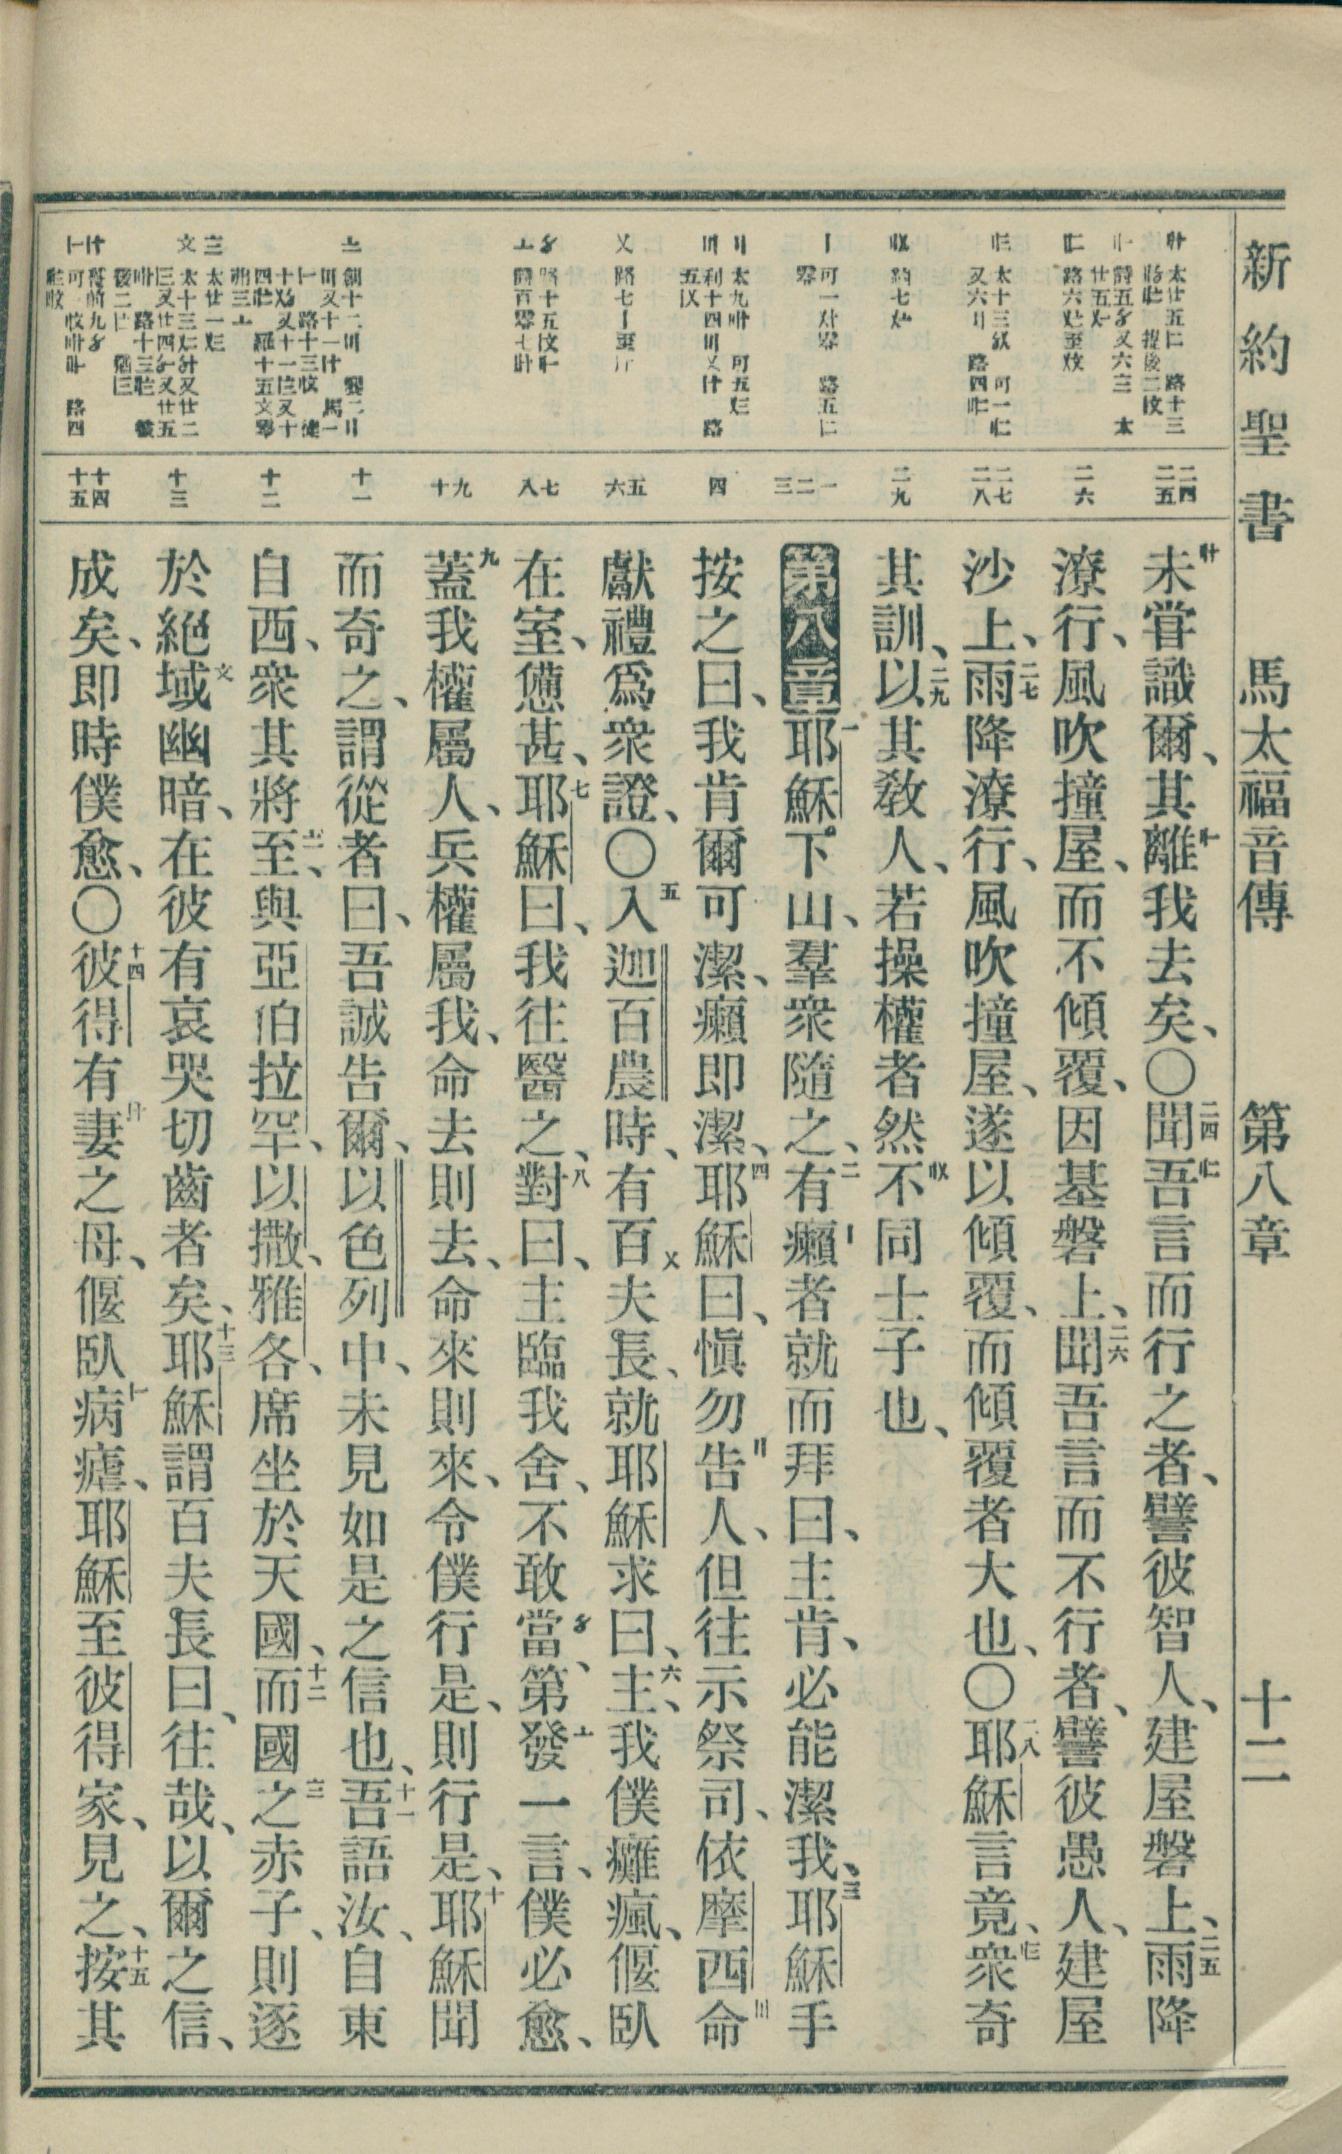 新約聖書 馬太福音傳 第八章 十二
二四 二五
二六
二七 二八
二九
一 二 三
四
五 六
七 八
九 十
十一
十二
十三
十四 十五
未嘗識爾、其離我去矣、〇二四聞吾言而行之者、譬彼智人、建屋磐上、二五雨降
潦行、風吹撞屋、而不傾覆、因基磐上、二六聞吾言而不行者、譬彼愚人、建屋
沙上、二七雨降潦行、風吹撞屋、遂以傾覆、而傾覆者大也、〇二八耶穌言竟、衆奇
其訓、二九以其教人、若操權者然、不同士子也、
第八章一耶穌下山、羣衆隨之、二有癩者就而拜曰、主肯、必能潔我、三耶穌手
按之曰、我肯爾可潔、癩即潔、四耶穌曰、愼勿告人、但往示祭司、依摩西命
獻禮爲衆證、〇五入迦百農時、有百夫長、就耶穌求曰、六主、我僕癱瘋、偃臥
在室、憊甚、七耶穌曰、我往醫之、八對曰、主臨我舍、不敢當、第發一言、僕必愈、
九蓋我權屬人、兵權屬我、命去則去、命來則來、令僕行是、則行是、十耶穌聞
而奇之、謂從者曰、吾誠告爾、以色列中、未見如是之信也、十一吾語汝、自東
自西、衆其將至、與亞伯拉罕、以撒、雅各、席坐於天國、十二而國之赤子、則逐
於絕域幽暗、在彼有哀哭切齒者矣、十三耶穌謂百夫長曰、往哉、以爾之信、
成矣、即時僕愈、〇十四彼得有妻之母、偃臥病瘧、耶穌至彼得家、見之、十五按其